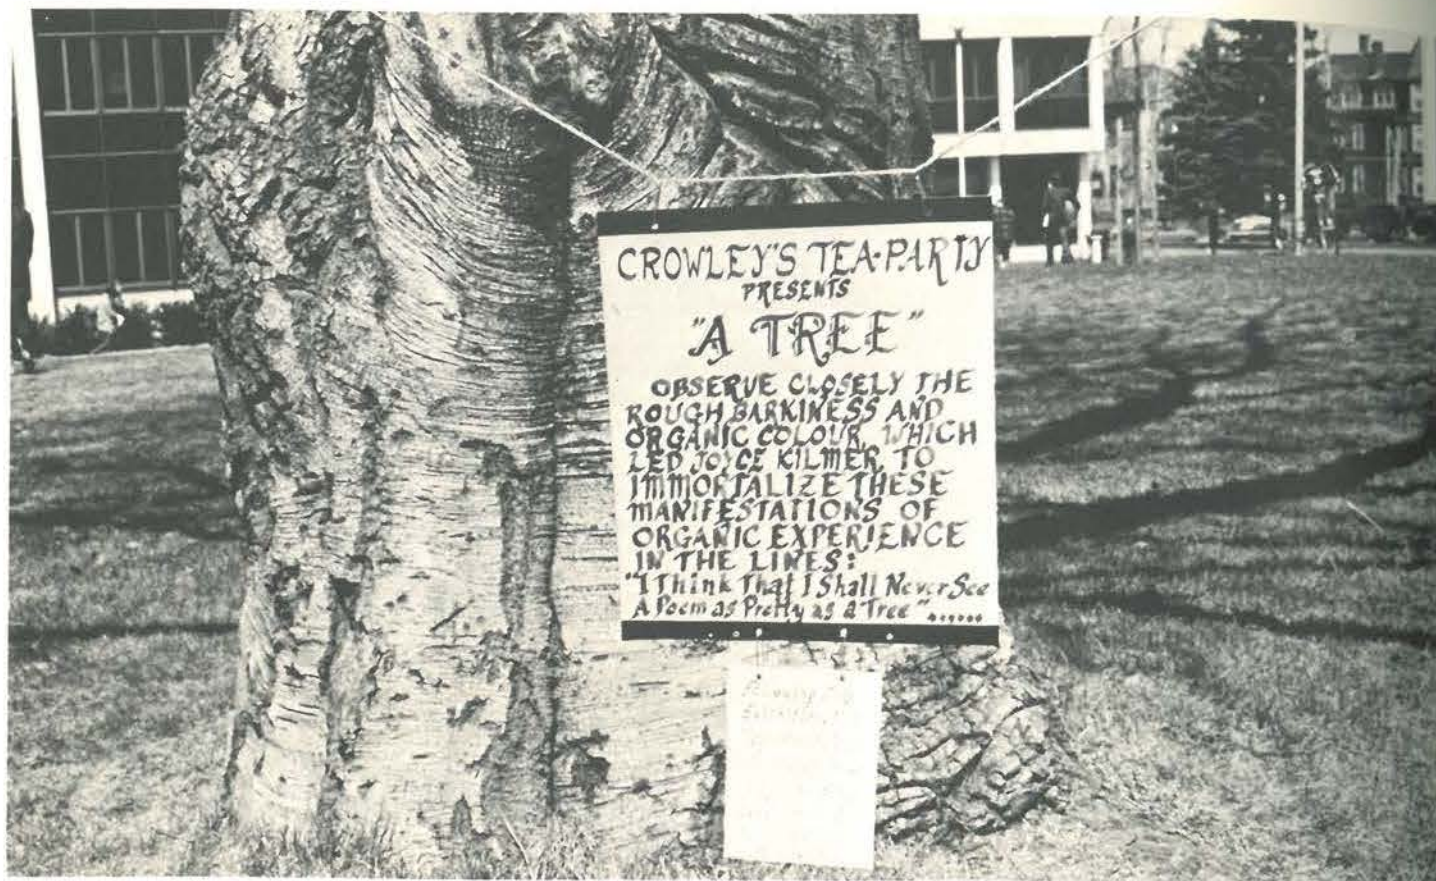 CROWLEY'S TEA-PARTY
PRESENTS
"A TREE"
OBSERVE CLOSELY THE
ROUGH BARKINESS AND
ORGANIC COLOUR, WHICH
LED JOYCE KILMER, TO
IMMORTALIZE THESE
MANIFESTATIONS OF
ORGANIC EXPERIENCE
IN THE LINES:
"I Think That I Shall Never See
A Poem as Pretty as a Tree".......